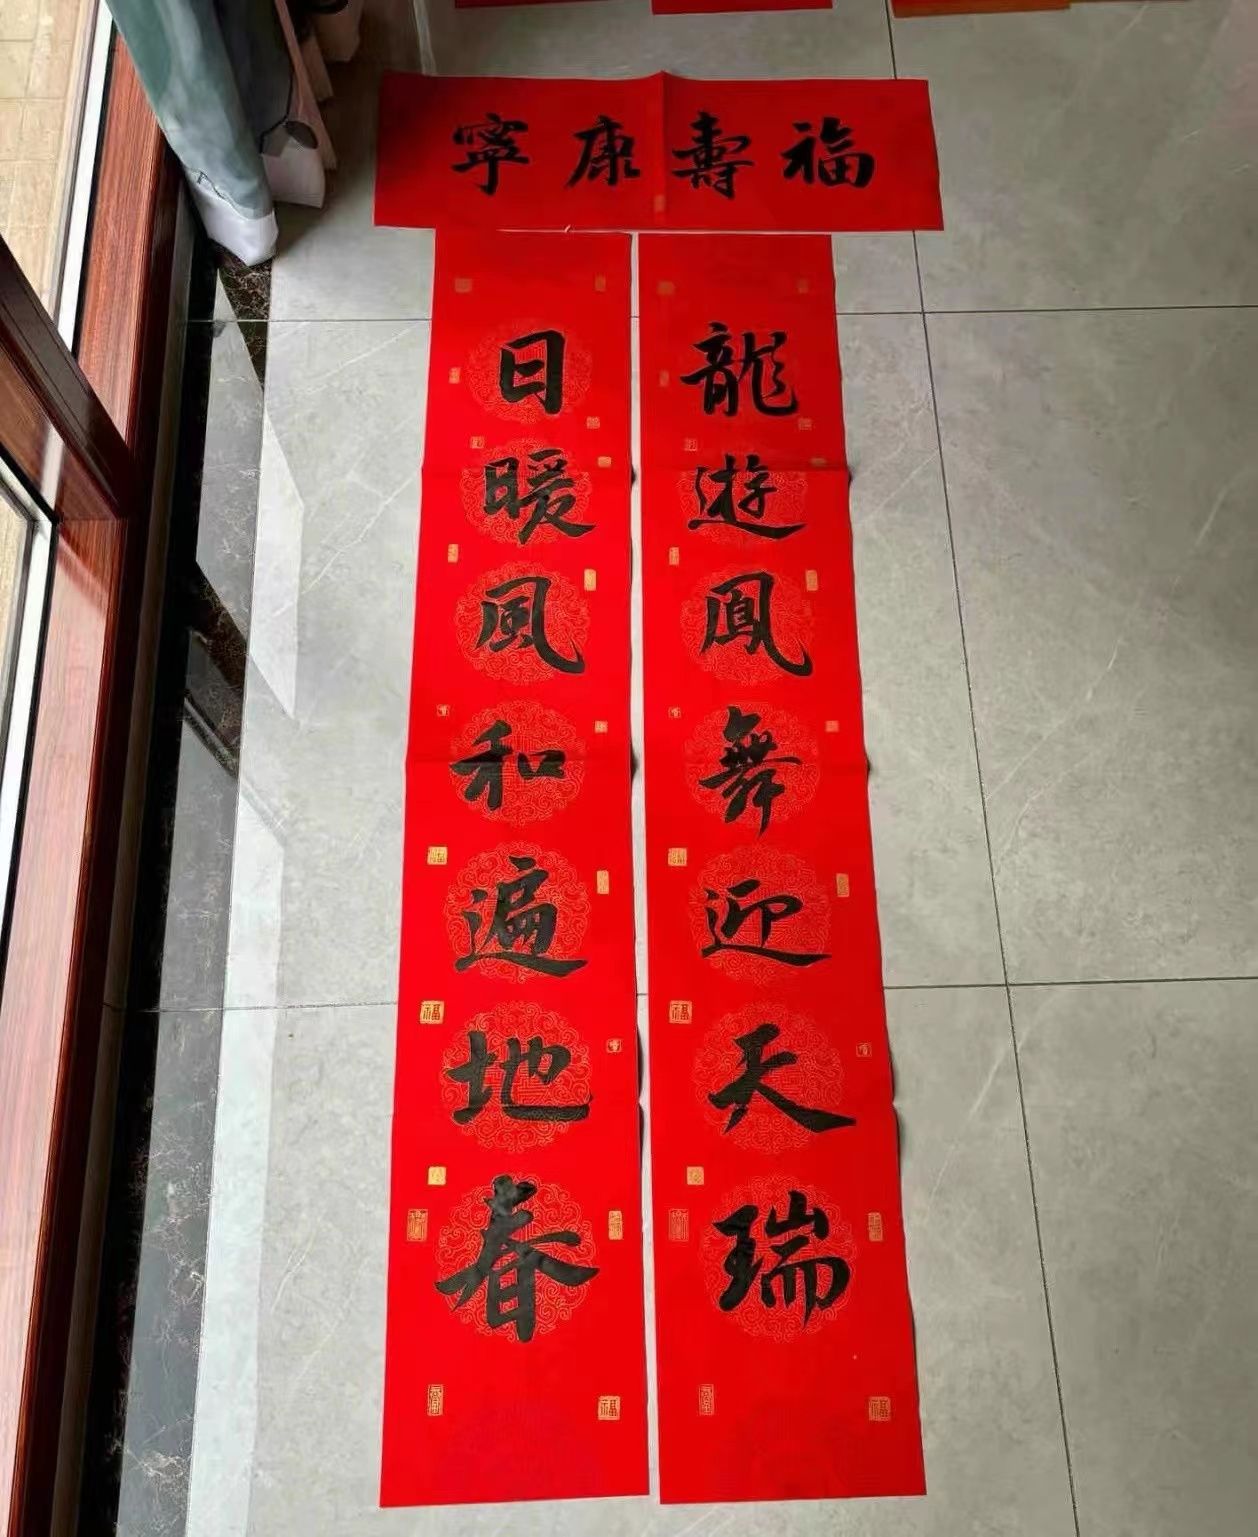 福壽康寧
龍遊鳳舞迎天瑞
日暖風和遍地春
福
福
福
福